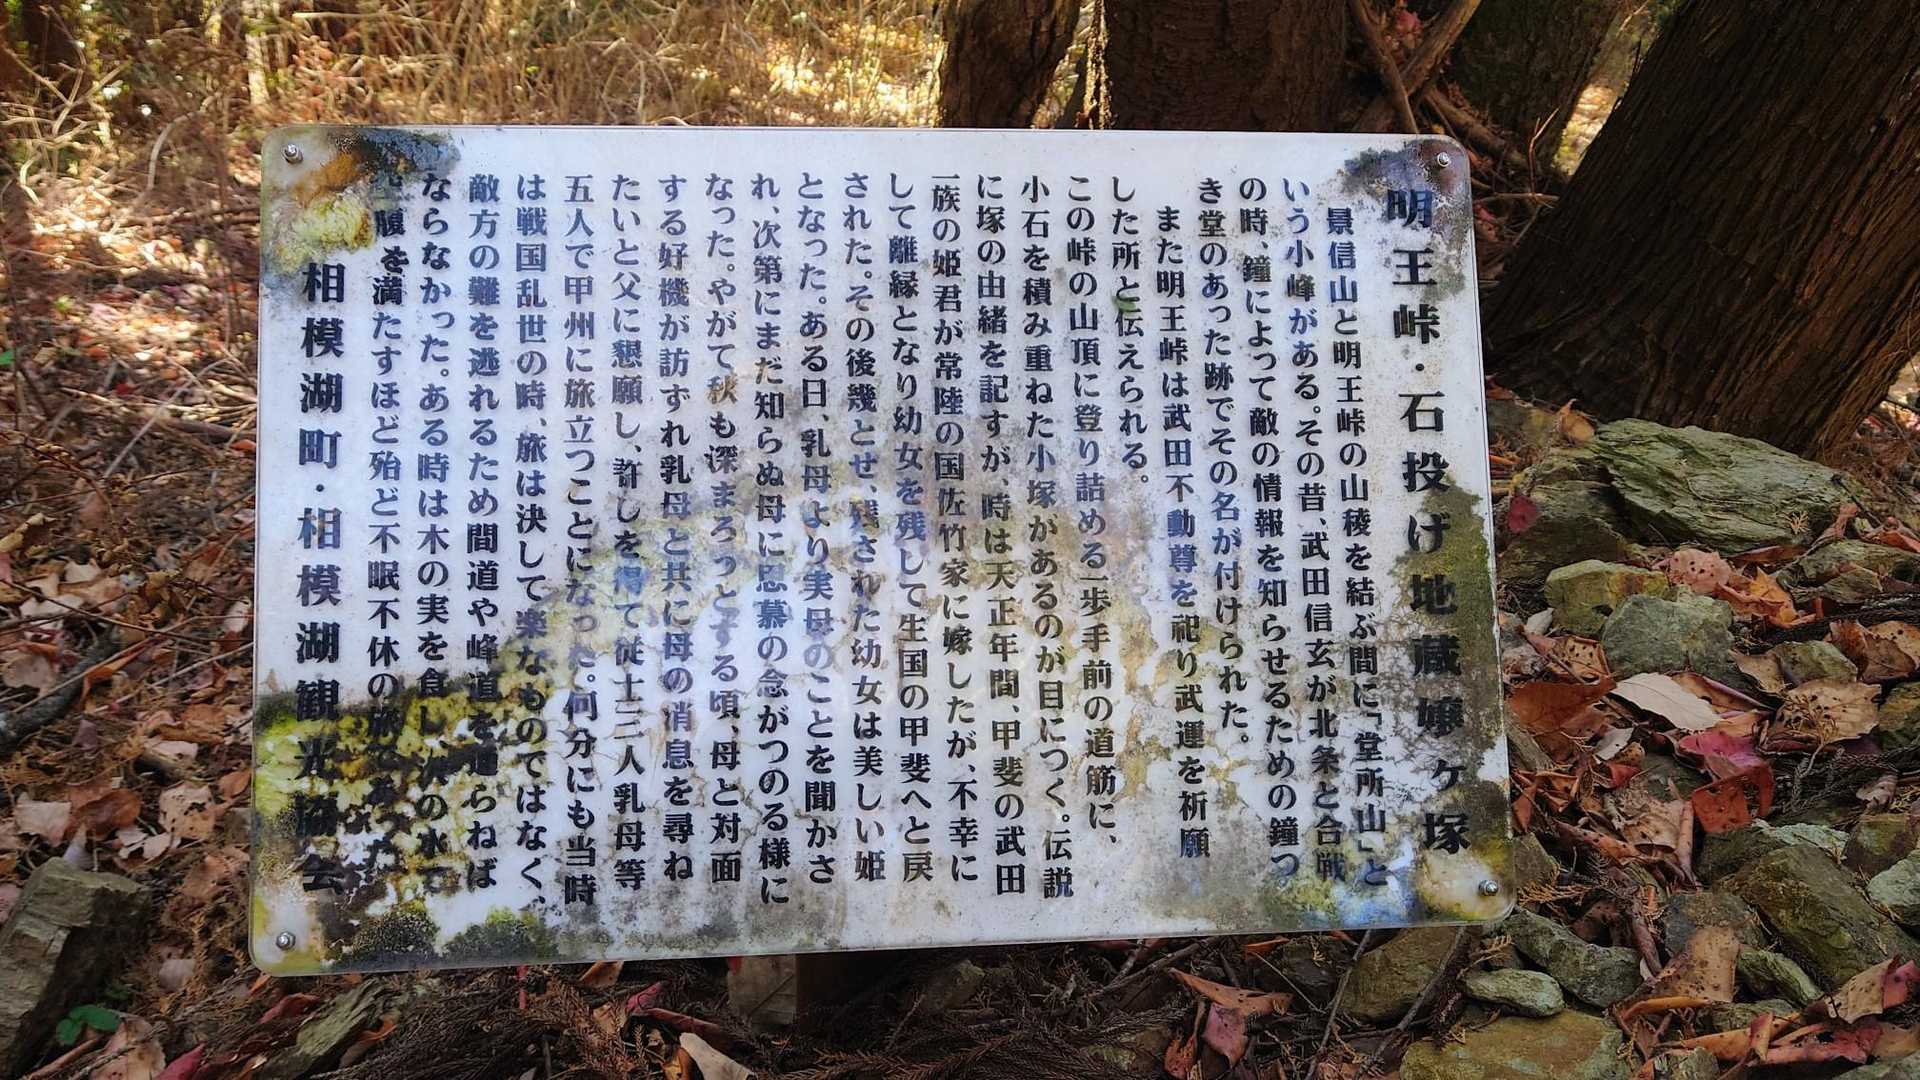 明王峠・石投げ地蔵嬢ヶ塚
景信山と明王峠の山稜を結ぶ間に「堂所山」と
いう小峰がある。その昔、武田信玄が北条と合戦
の時、鐘によって敵の情報を知らせるための鐘つ
き堂のあった跡でその名が付けられた。
また明王峠は武田不動尊を祀り武運を祈願
した所と伝えられる。
この峠の山頂に登り詰める一歩手前の道筋に、
小石を積み重ねた小塚があるのが目につく。伝説
に塚の由緒を記すが、時は天正年間、甲斐の武田
一族の姫君が常陸の国佐竹家に嫁したが、不幸に
して離縁となり幼女を残して生国の甲斐へと戻
された。その後幾とせ、残された幼女は美しい姫
となった。ある日、乳母より実母のことを聞かさ
れ、次第にまだ知らぬ母に思慕の念がつのる様に
なった。やがて秋も深まろうとする頃、母と対面
する好機が訪ずれ乳母と共に母の消息を尋ね
たいと父に懇願し、許しを得て従士三人乳母等
五人で甲州に旅立つことになった。何分にも当時
は戦国乱世の時、旅は決して楽なものではなく、
敵方の難を逃れるため間道や峰道を通らねば
ならなかった。ある時は木の実を食し、沢の水で
空腹を満たすほど殆ど不眠不休の旅であった
相模湖町・相模湖観光協会